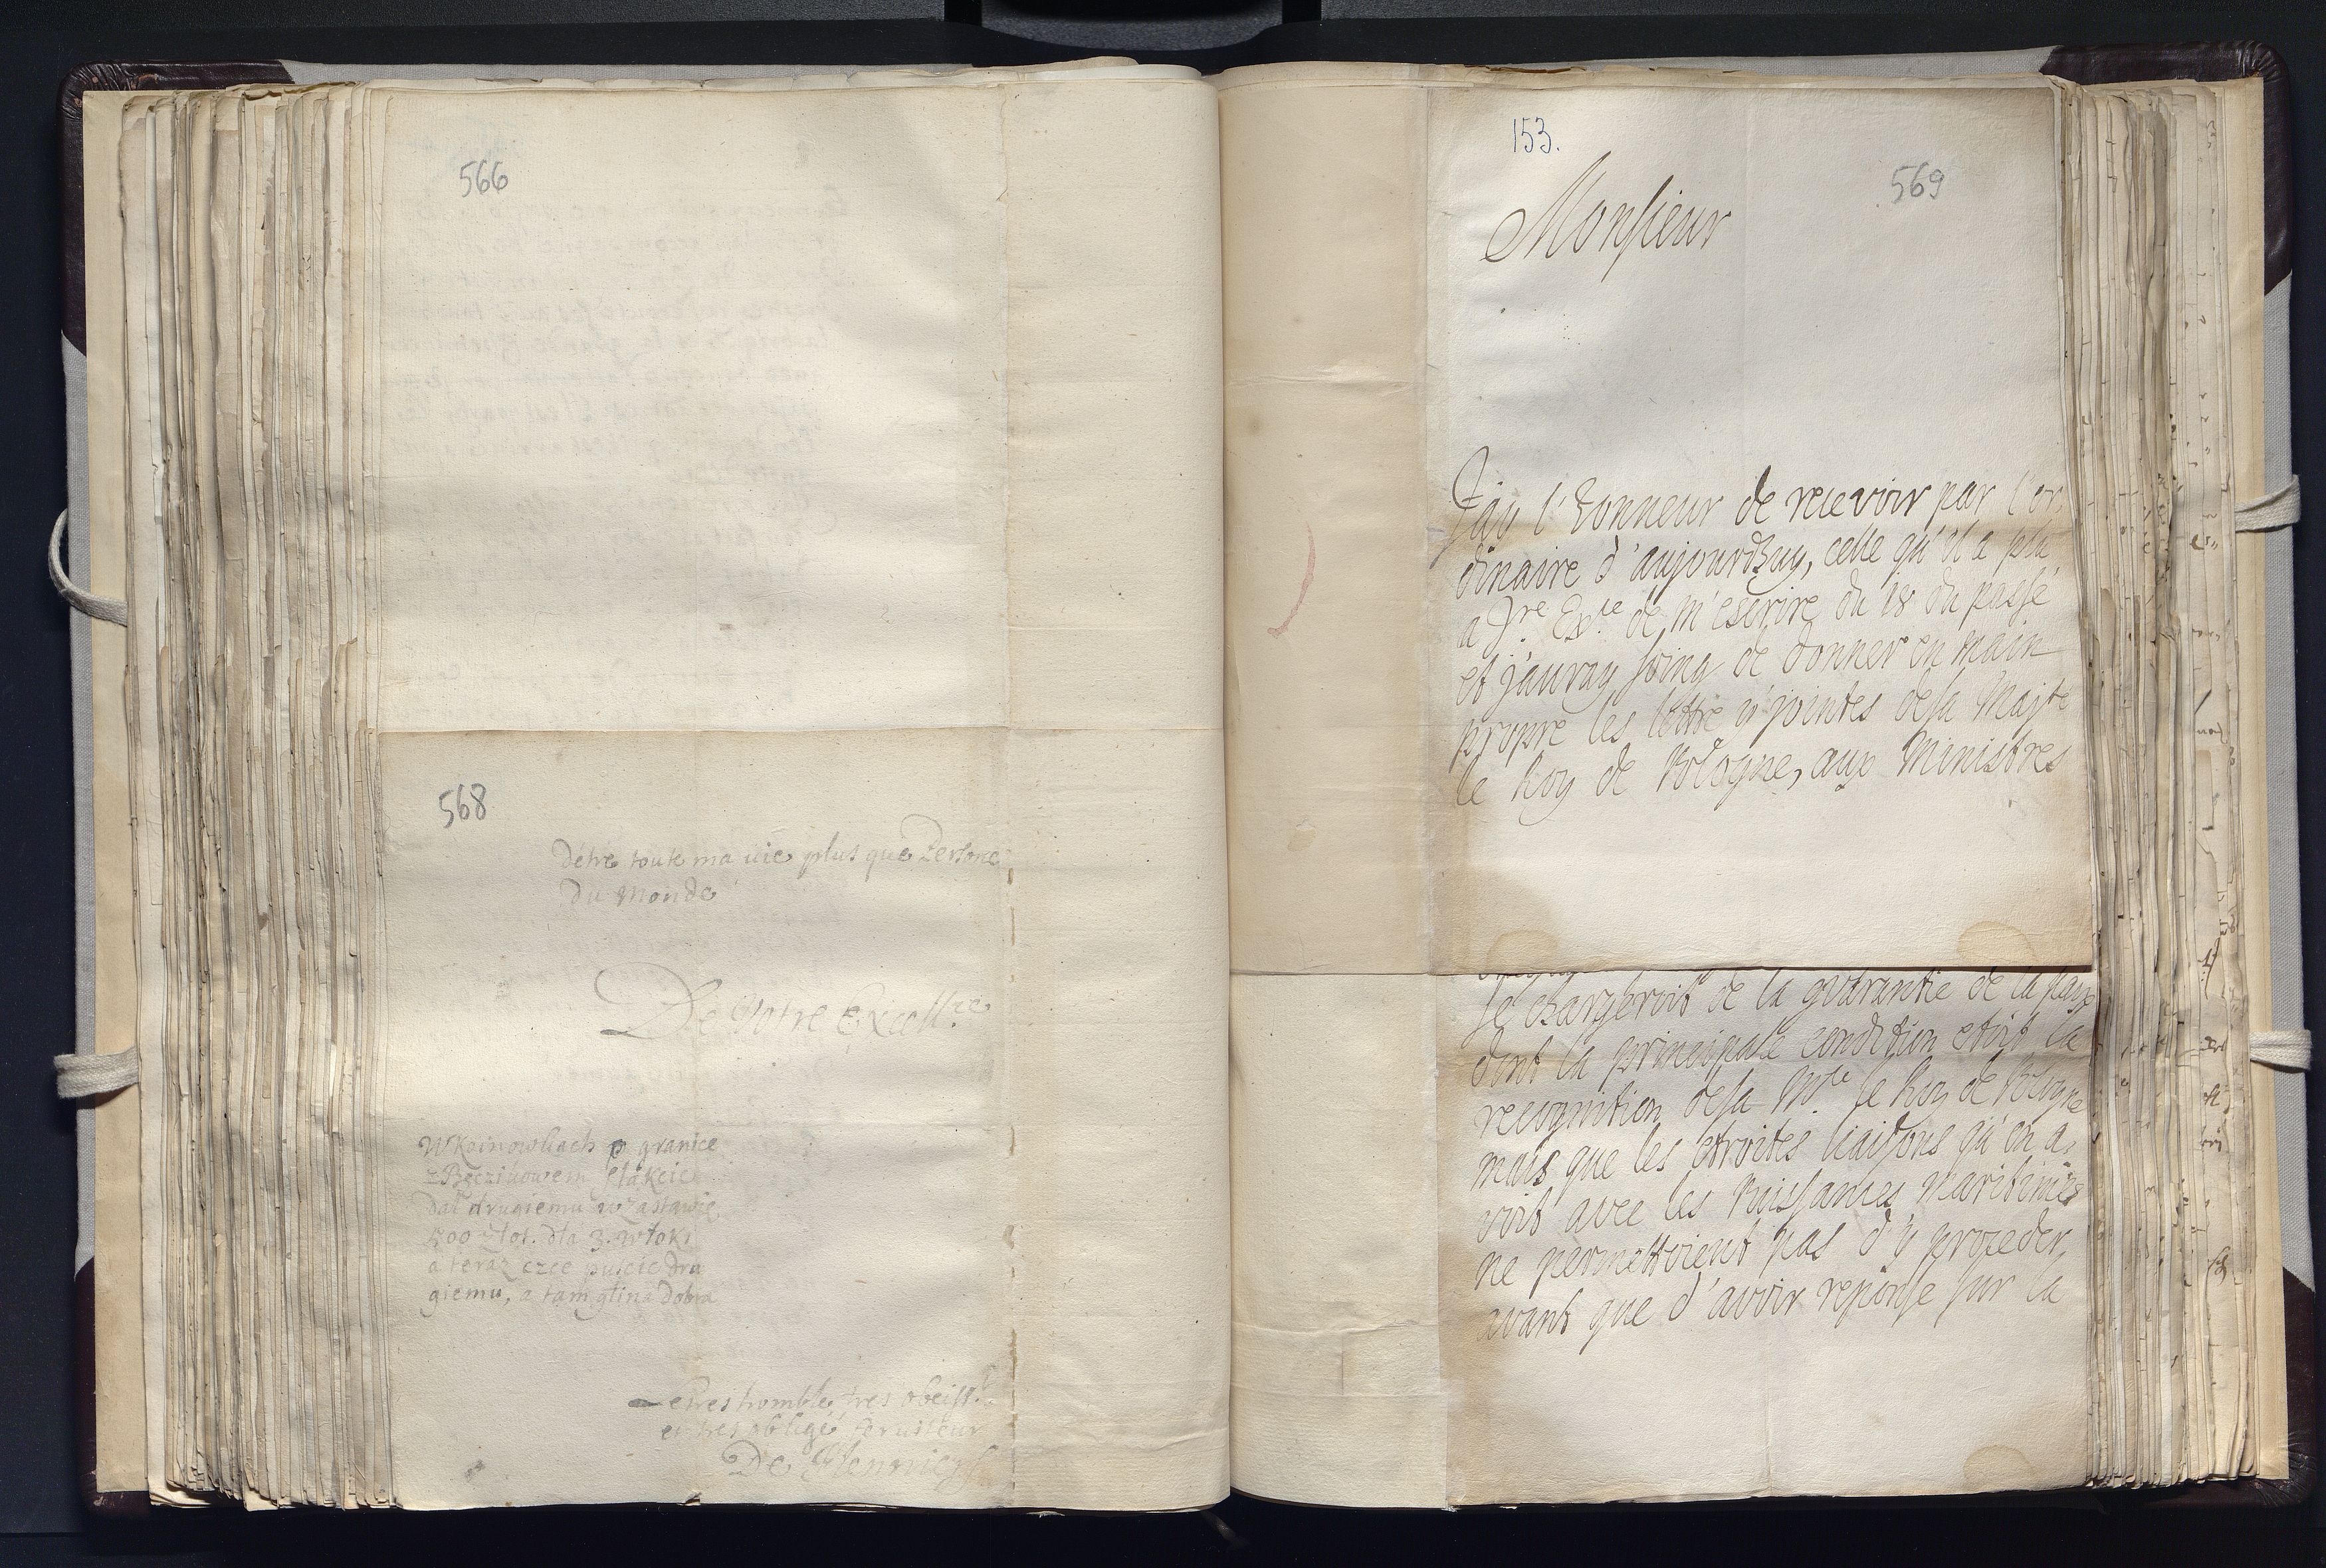 566
568
D'etre toute ma vie plus que Persone
Du Monde
De Votre Excell.ce
W Koinowkach p granice
z Bęczinowem
dał drugiemu w zastawie
500 złot. dla 3. włoki
a teraz czce puscic dru
giemu, a tam glina dobra
tres humble, tres obeiss.t
et tres obligé serviteur
De
153.
569
Monsieur
J'ay l'honneur de recevoir par l'or,
dinaire d'aujourdhuy, celle qu'il a plû
a V.re Ex.ce de m'escrire du 18 du passé
et j'auray soing de donner en main
propre les lettre y jointes de sa Maj.te
le Roy de Pologne, aux Ministres
se chargeroit de la guarantie de la paix
dont la principale condition etoit la
recognition de sa M.te le Roy de Pologne
mais que les etroites liaisons qu'on a,
voit avec les Puissances Maritimes
ne permettoient pas d'y proceder,
avant que d'avoir reponse sur la